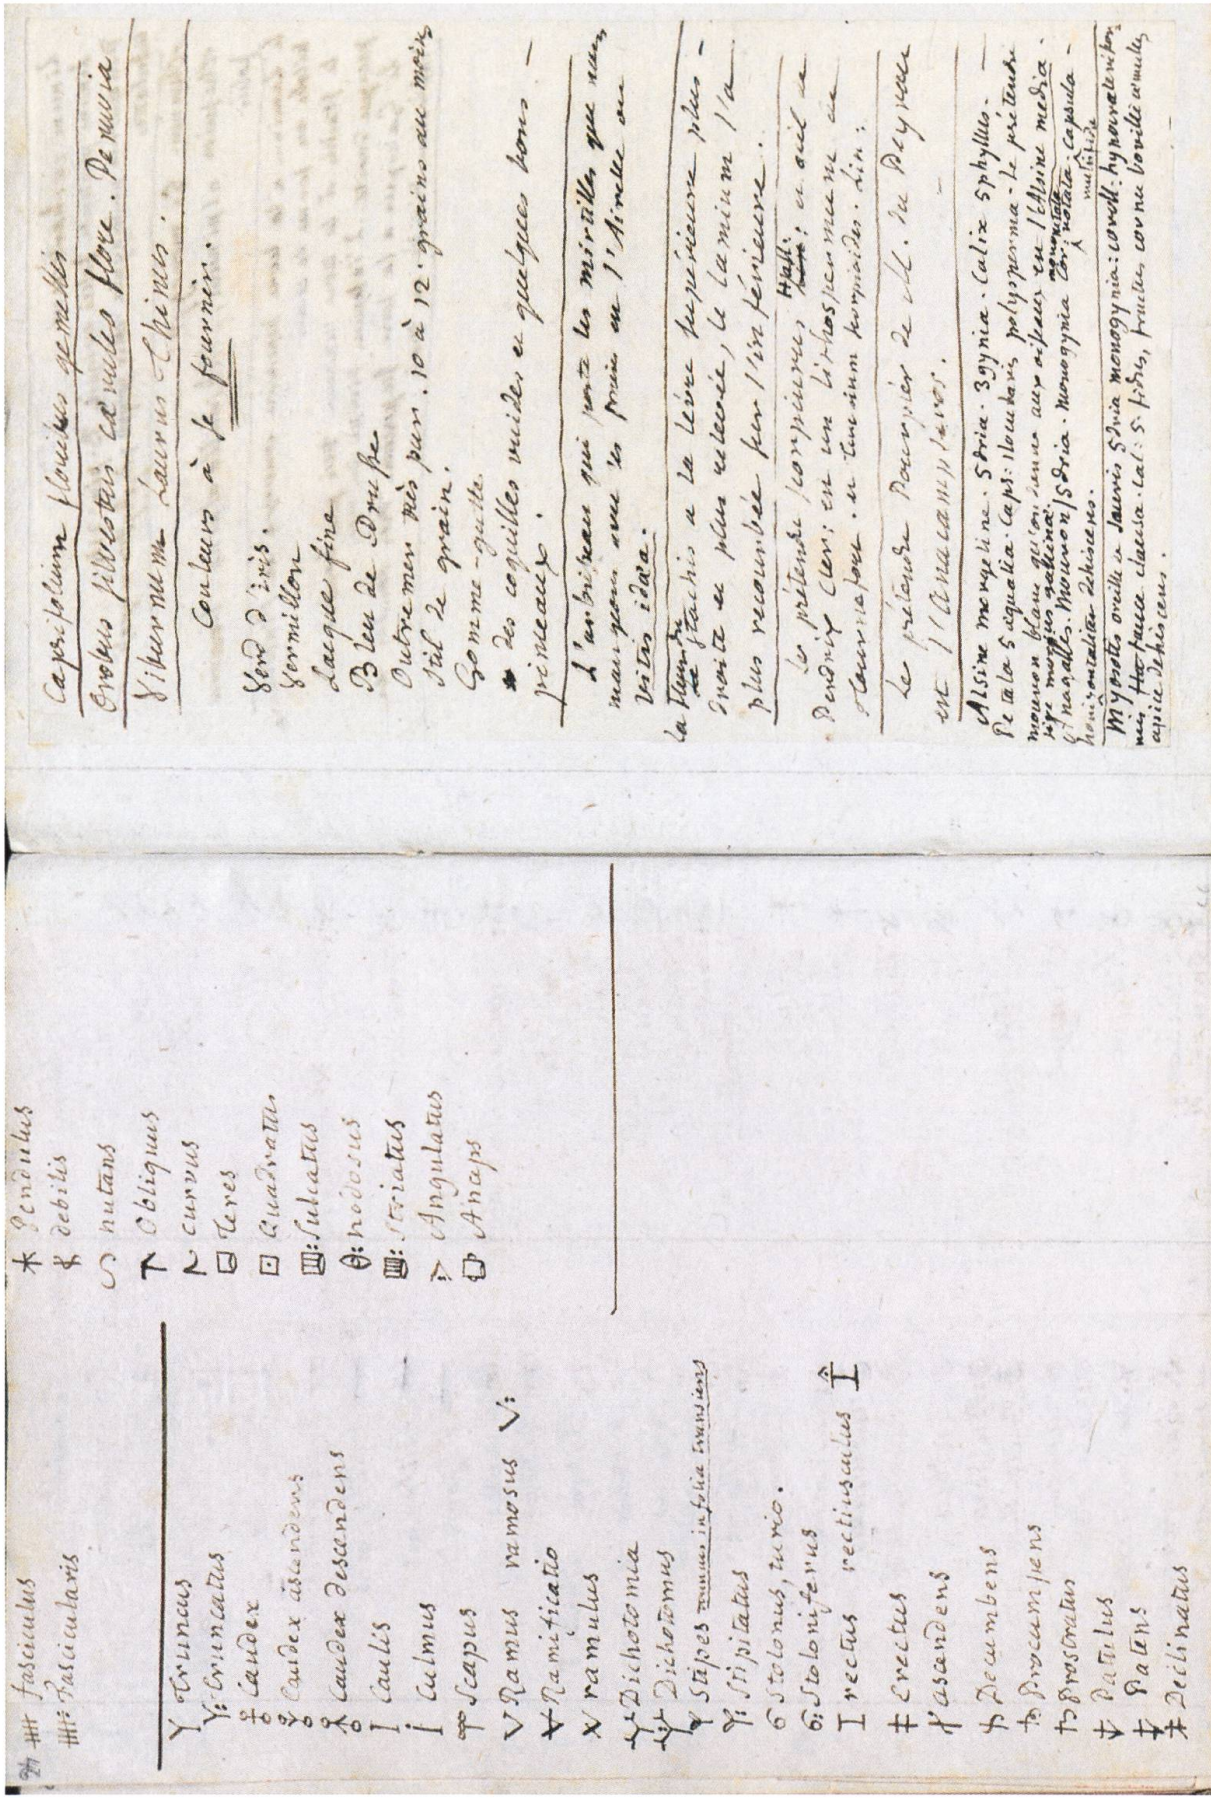 fasciculus
Fascicularis
Truncus
Truncatus
Caudex
Caudex ascendens
Caudex descendens
Caulis
Culmus
Scapus
Ramus ramosus V:
Ramificatio
ramulus
Dichotomia
Dichotomus
Stipes in folia transiens
Stipitatus
Stolonus, turio.
Stoloniferus
rectus rectiusculus
Erectus
ascendens
Decumbens
Procumpens
Prostratus
Patulus
Patens
Declinatus
Pendulus
debilis
nutans
Obliquus
curvus
Teres
Quadratus
Sulcatus
nodosus
Striatus
Angulatus
Anceps
Caprifolium floribus gemellis
Orobus silvestris cæruleo flore. Peruvia
Viburnum Laurus Thinus.
Couleurs à se fournir.
Verd d'iris.
Vermillon
Laque fine
Bleu de Prusse
Outremer très pur. 10 à 12 grains au moins
Stil de grain.
Gomme-gutte.
des coquilles vuides et quelques bons
pinceaux.
L'arbrisseau qui porte les mirtilles que nous
mangeons avec
Vitis idæa.
La fleur du
stachis a la lèvre supérieure plus
droite et plus relevée, le lamium l'a
plus recourbée sur l'inférieure.
Le prétendu Hall:
Perdrix Cler: est un lithospermum de
Tournefort. et linum Lin:
Le prétendu Pourpier de M. du Peyrou
est l'
Alsine morgeline. 5dria. 3gynia. Calix 5phyllus.
Petala 5 æqualia. Caps: 1locularis polysperma. Le prétendu
mouron blanc qu'on donne aux oiseaux est l'Alsine media.
sive morsus gallinæ.
Mouron 5dria. monogynia Cor: rotata. Capsula
multifida
horizontaliter dehiscens.
Myosotis oreille de souris 5dria monogynia: coroll. hypocrateriformis,
fauce clausa. Cal: 5 fidus, fructus cornu
apice dehiscens.